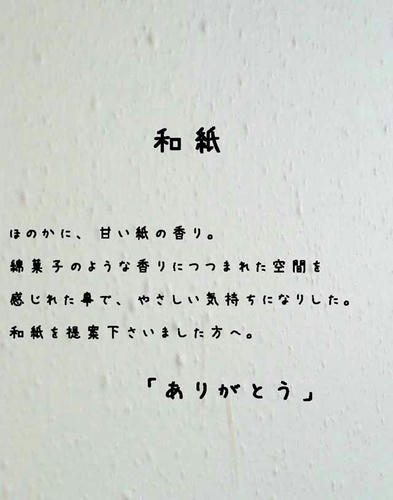 和紙
ほのかに、甘い紙の香り。
綿菓子のような香りにつつまれた空間を
感じれた事で、やさしい気持ちになりした。
和紙を提案下さいました方へ。
「ありがとう」